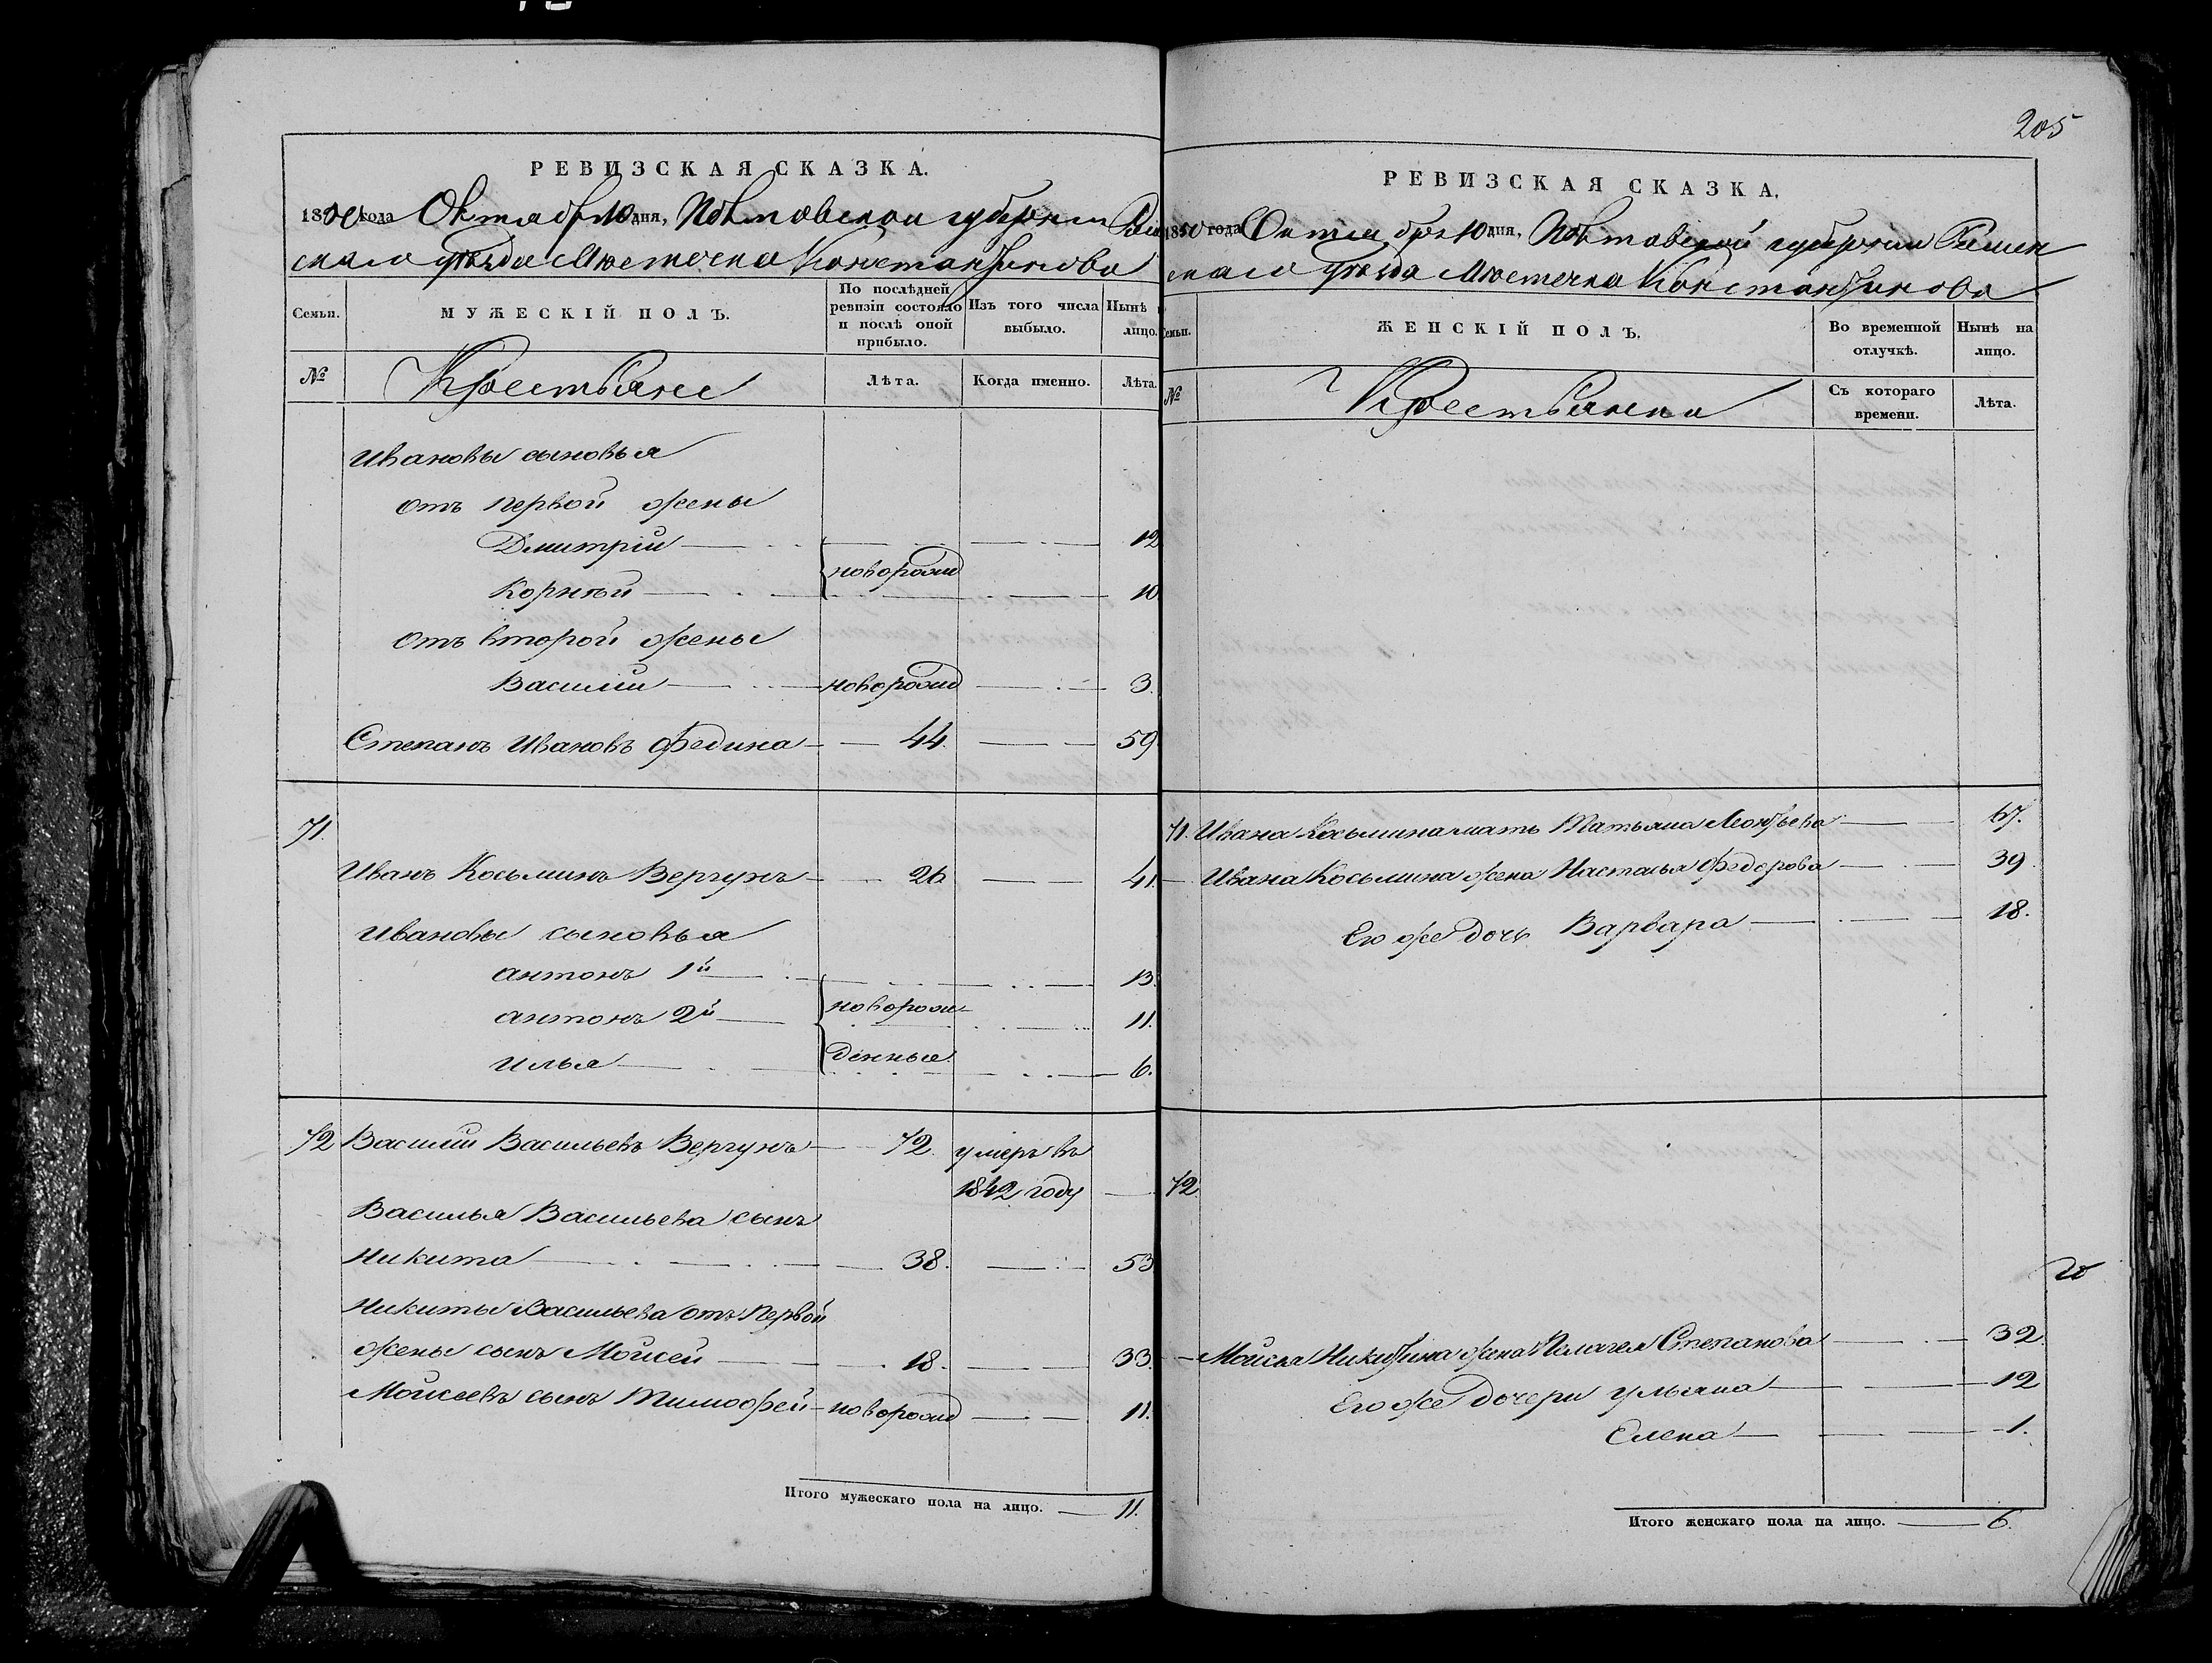 РЕВИЗСКАЯ СКАЗКА.
1850 года Октября 10 дня, Полтавской губернии Ромен
скаго уѣзда Мѣстечка Константинова
Семьи.
МУЖЕСКІЙ ПОЛЪ.
По послѣдней ревизіи состояло и послѣ оной прибыло.
Изъ того числа выбыло.
Нынѣ на лицо.
№
Крестьяне
Лѣта.
Когда именно.
Лѣта.
Ивановы сыновья
отъ первой жены
Дмитрій 12
новорожд
Корнѣй 10.
отъ второй жены
Василій новорожд 3.
Степанъ Ивановъ Федина 44. 59
71.
Иванъ Косьминъ Вергунъ 26 41.
Ивановы сыновья
Антонъ 1й 13.
Антонъ 2й новорож- 11.
Илья денные. 6.
72 Василій Васильевъ Вергунъ 72. умеръ въ
1842 году
Василья Васильева сынъ
Никита 38. 53
Никиты Васильева отъ первой
жены сынъ Мойсей 18. 33.
Мойсеевъ сынъ Тимофей новорожд 11.
Итого мужескаго пола на лицо. 11.
205
РЕВИЗСКАЯ СКАЗКА.
1850 года Октября 10 дня, Полтавской губернии Ромен
скаго уѣзда Мѣстечка Константинова
Семьи.
ЖЕНСКІЙ ПОЛЪ.
Во временной отлучкѣ.
Нынѣ на лицо.
№
Крестьянки
Съ котораго времени.
Лѣта.
71. Ивана Косьмина мать Татьяна Леонтьева 67.
Ивана Косьмина жена Настасья Федорова 39.
Его же дочь Варвара 18.
72
Мойсея Никитина жена Пелагея Степанова 32.
Его же дочери Ульяна 12
Елена 1.
Итого женскаго пола на лицо. 6.